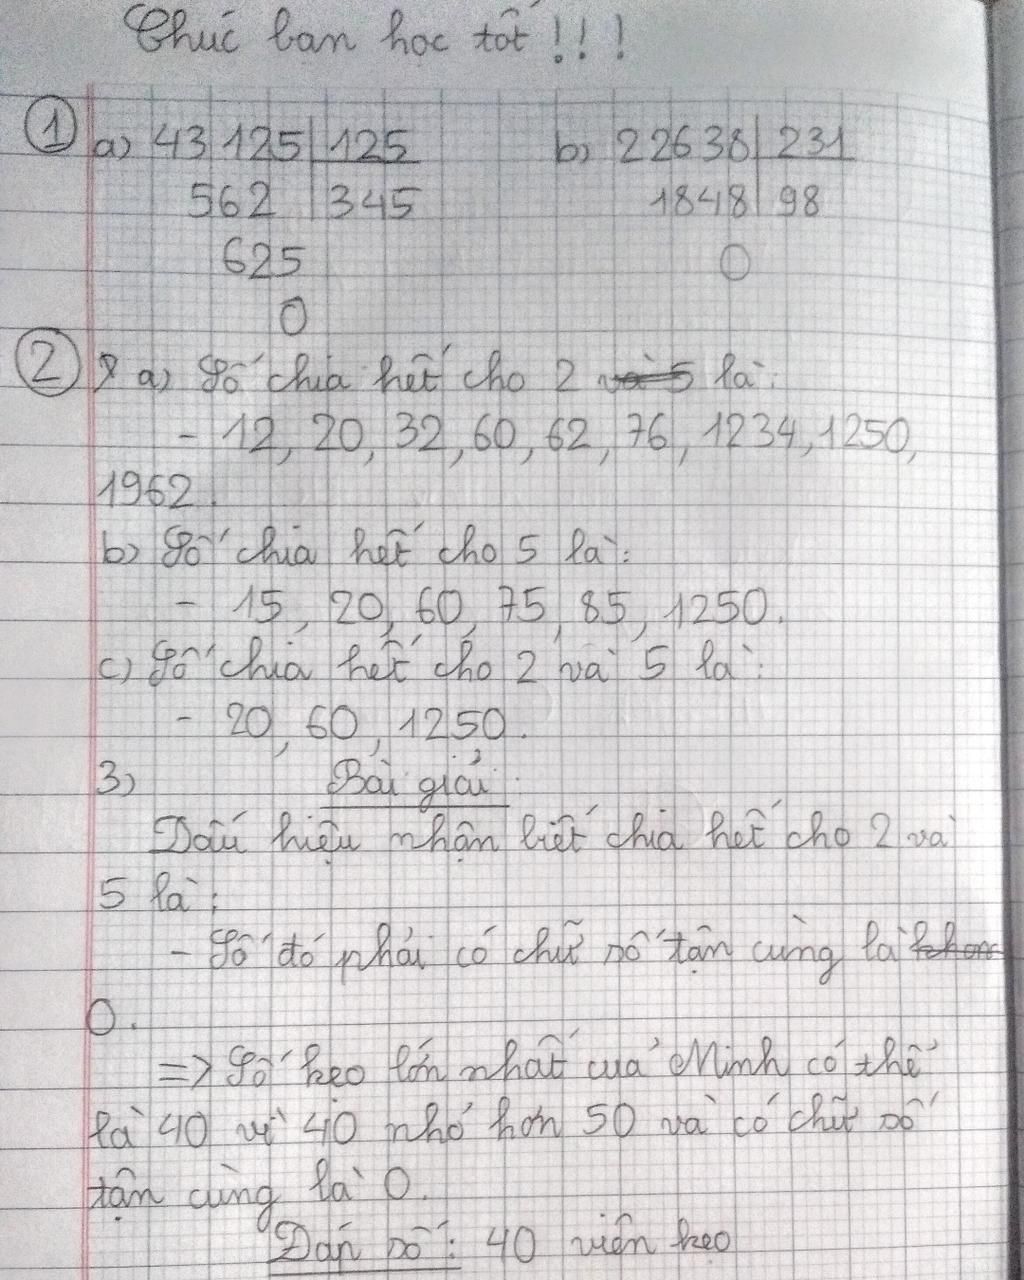 Chúc bạn học tốt!!!
1 a) 43 125 | 125 b) 22638 | 231
562 | 345 1848 | 98
625 0
0
2 a) Số chia hết cho 2 là:
- 12, 20, 32, 60, 62, 76, 1234, 1250,
1962.
b) Số chia hết cho 5 là:
- 15, 20, 60, 75, 85, 1250.
c) Số chia hết cho 2 và 5 là:
- 20, 60, 1250.
3) Bài giải:
Dấu hiệu nhận biết chia hết cho 2 và
5 là:
- Số đó phải có chữ số tận cùng là
0.
=> Số kẹo lớn nhất của Minh có thể
là 40 vì 40 nhỏ hơn 50 và có chữ số
tận cùng là 0.
Đáp số: 40 viên kẹo